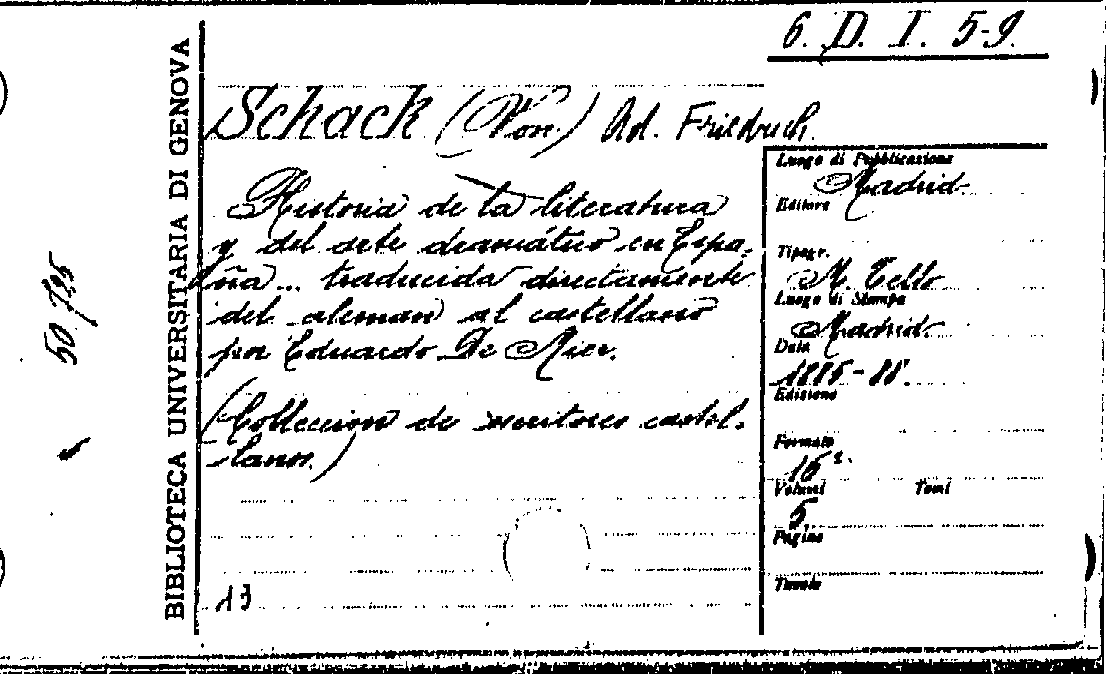 6. D. I. 5-9.
Schack (Von) Ad. Friedrich.
Historia de la literatura
y del arte dramático en Espa-
ña... traducida directamente
del aleman al castellano
por Eduardo De Mier.
(Colleccion de escritores castel-
lanos.)
13
BIBLIOTECA UNIVERSITARIA DI GENOVA
50795
Luogo di Pubblicazione
Madrid
Editore
Tipogr.
M. Tello
Luogo di Stampa
Madrid.
Data
1885-88.
Edizione
Formato
16º.
Volumi Tomi
5
Pagine
Tavole